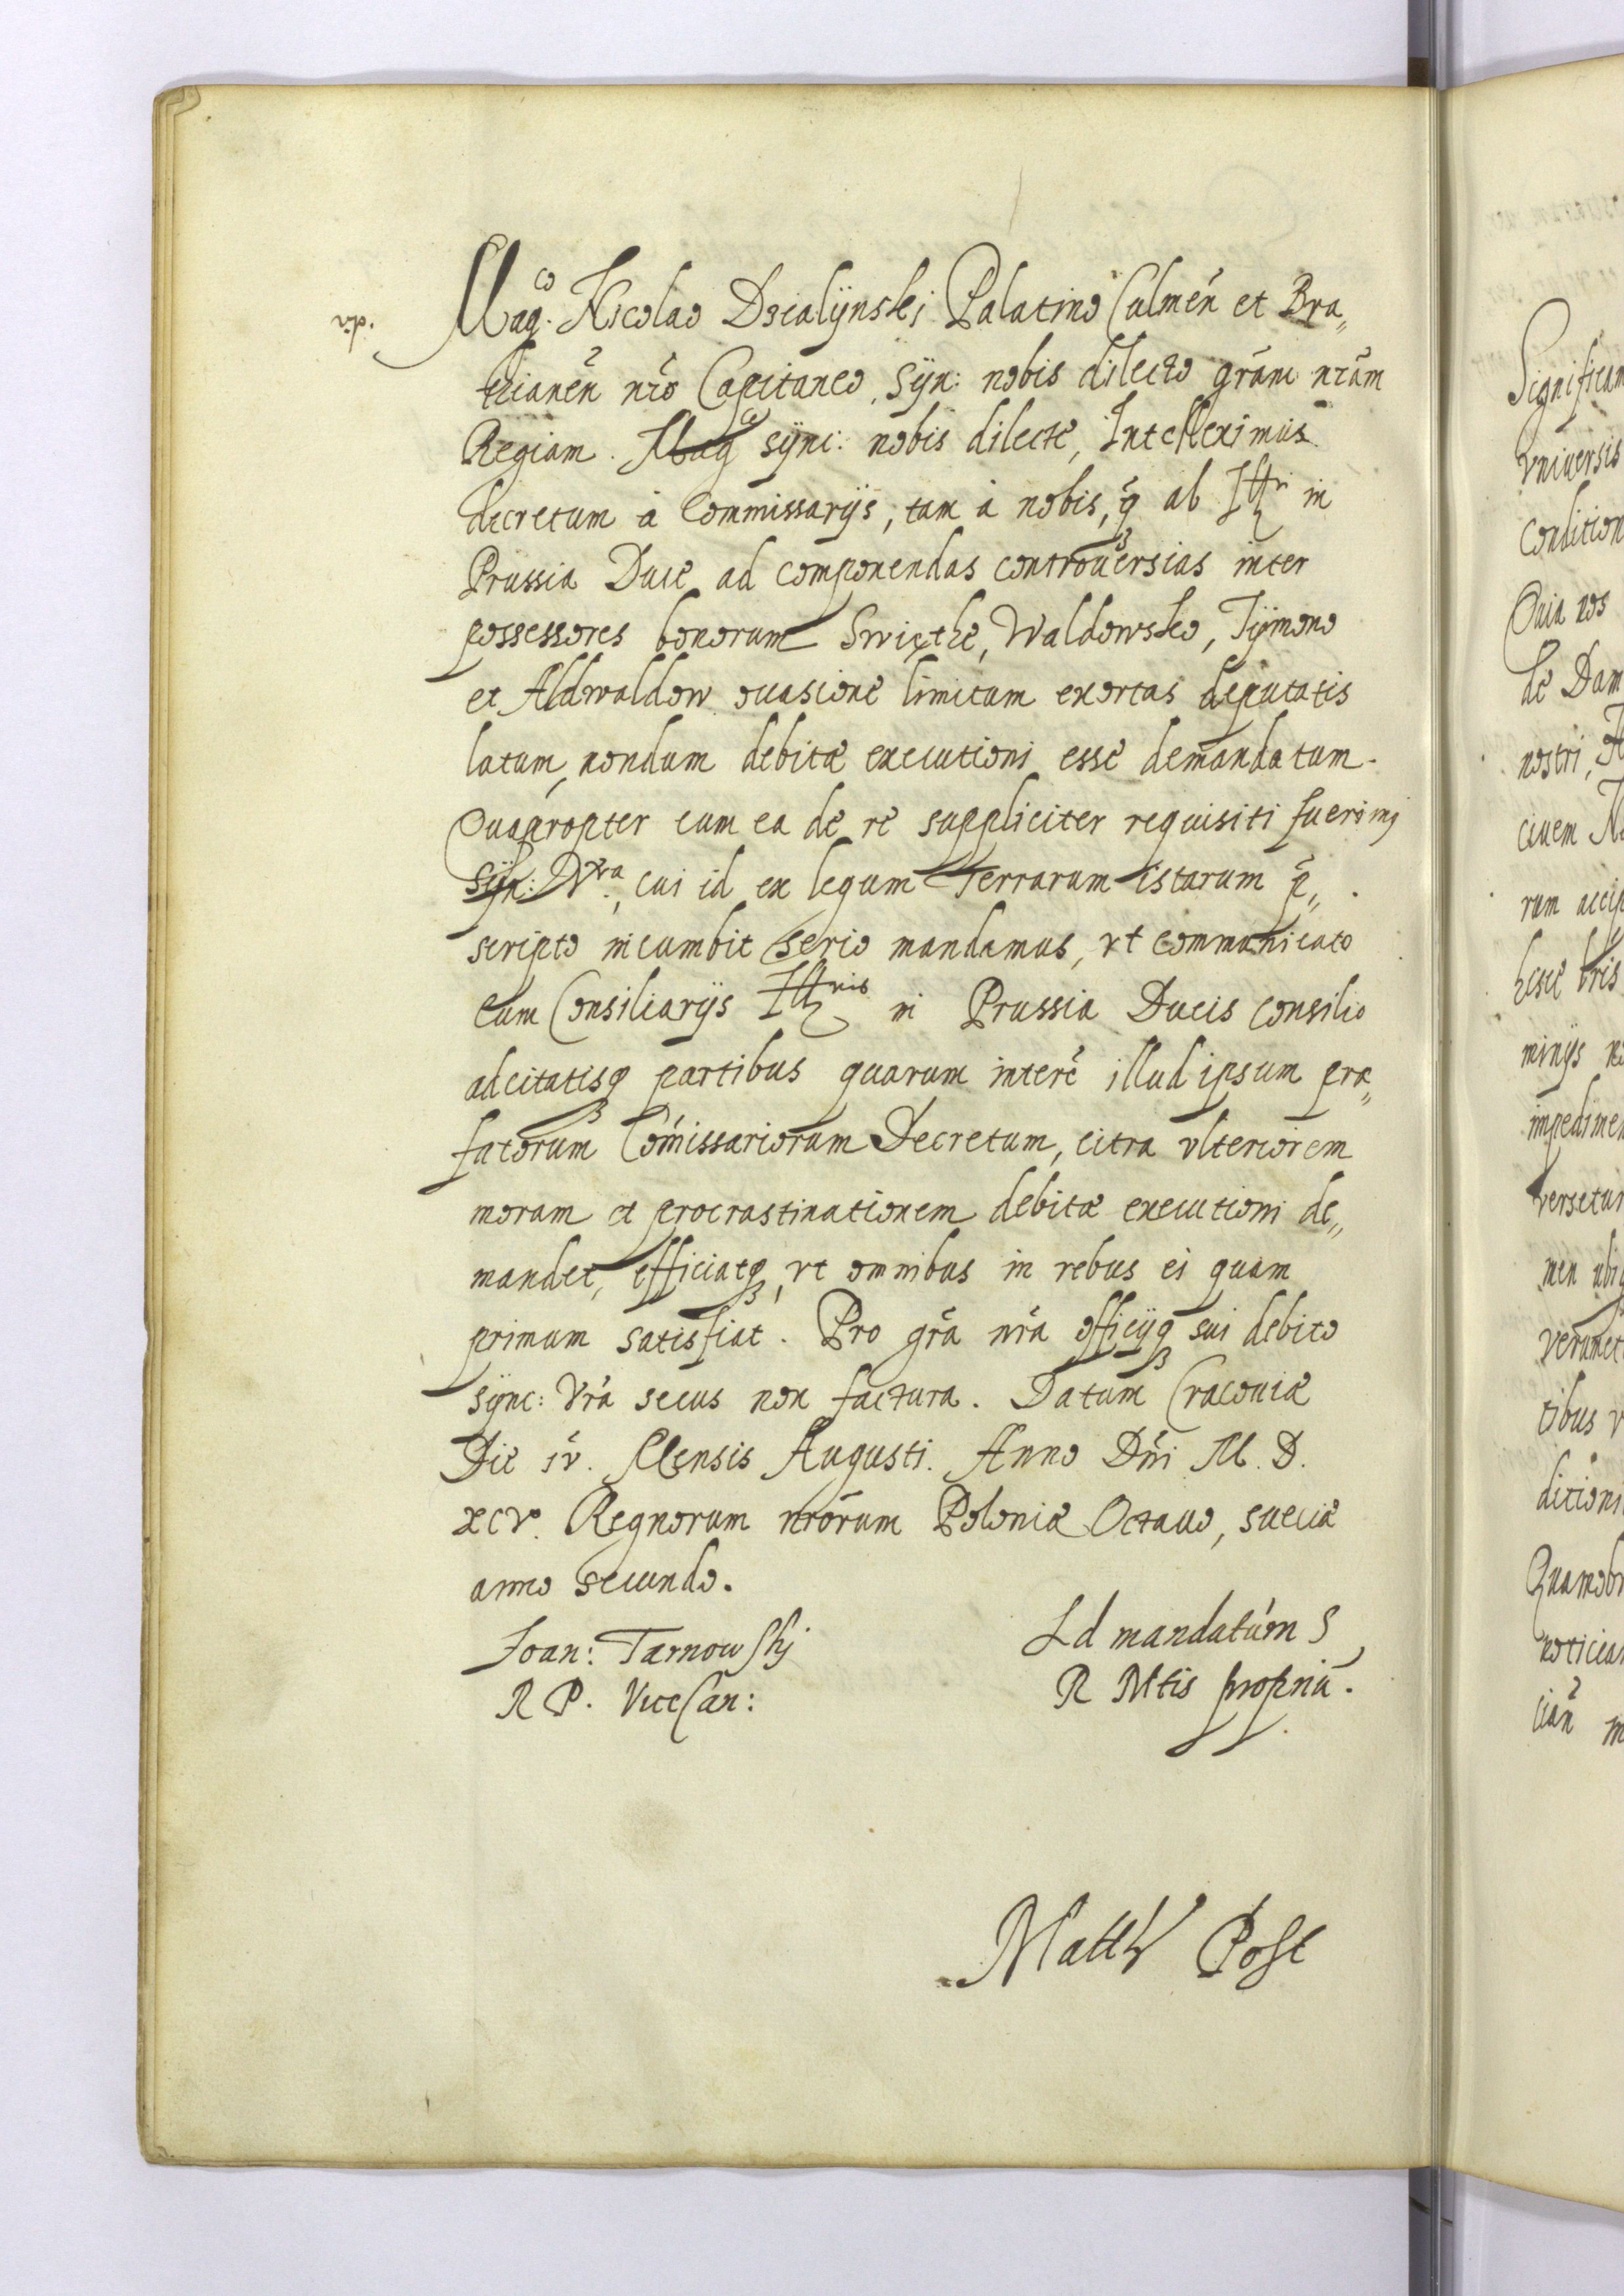 Mag.co Nicolao Dzialÿnski Palatino Culmeñ et Bra„
thianeñ nr̃o Capitaneo, Sÿn: nobis dilecto gr̃am nr̃am
Regiam. Magce sÿnc: nobis dilecte, Intelleximus
decretum à Commissarijs, tam à nobis, q̃ ab Illri in
Prussia Duce ad componendas controuersias inter
possessores bonorum Swięthe, Waldowsko, Tÿmono
et Aldwaldow occasione limitum exortas deputatis
latum, nondum debitæ executioni esse demandatum.
Quapropter cum ea de re suppliciter requisiti fuerimꝯ
Sÿn: Vra, cui id ex legum Terrarum istarum p̃„
scripto incumbit serio mandamus, vt communicato
cum Consiliarijs Illris in Prussia Ducis consilio
adcitatisqꝫ partibus quarum interẽ illud ipsum præ„
fatorum Com̃issariorum Decretum, citra vlteriorem
moram et procrastinationem debitæ executioni de„
mandet, efficiatqꝫ, vt omnibus in rebus ei quam
primum satisfiat. Pro gr̃a nr̃a officijqꝫ sui debito
sÿnc: Vr̃a secus non factura. Datum Cracouiæ
Die iv. Mensis Augusti. Anno Dñi M. D.
xcv. Regnorum nr̃orum Poloniæ Octauo, sueciæ
anno secundo.
Joan: Tarnowskj
R P. ViceCan:
Ad mandatum S
R Mtis propriũ.
Matth Post
Significam
vniuersis
condition
Quia nos
de Dam
nostri,
ciuem
rum accip
minijs
impedimen
versetur
men ubiq
verumet
tibus v
ditioni
Quamobr
noticiam